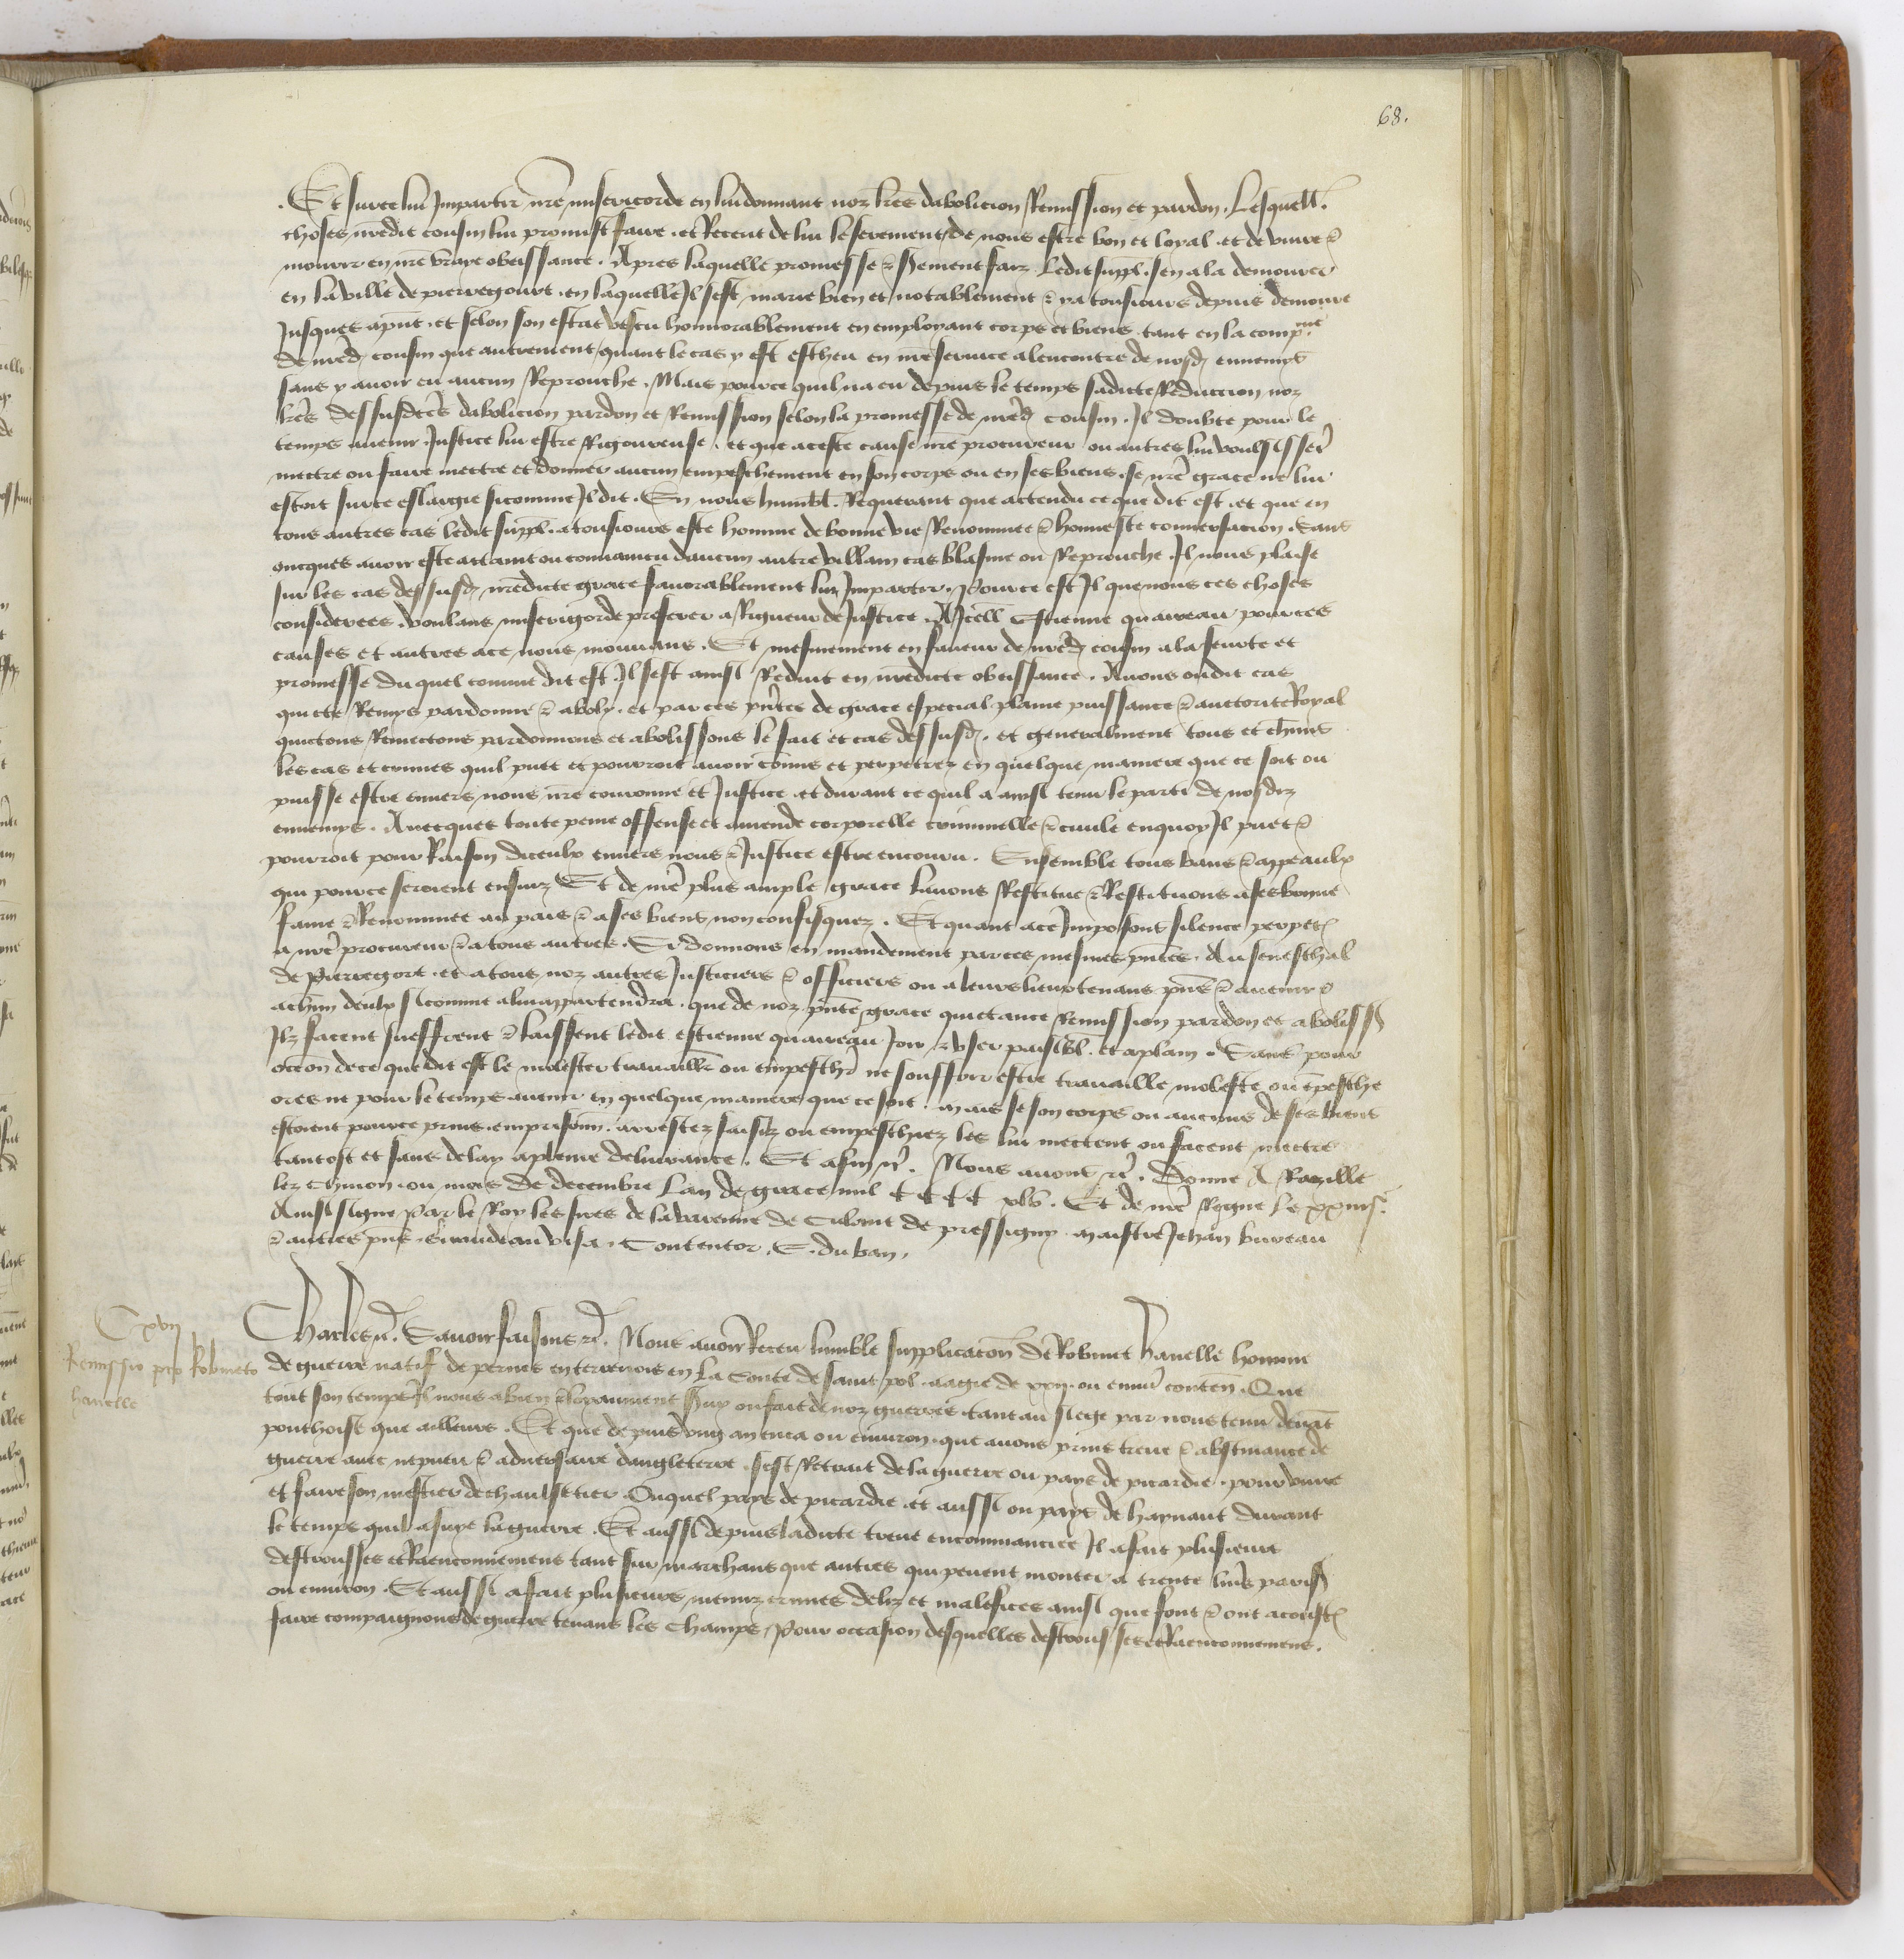 68.
. Et surce lui Impartir nre misericorde en lui donnant noz lres dabolicion Remission et pardon . Lesquell.
choses nredit cousin lui promist faire . et Receut de lui le serement de nous estre bon et loyal . et de vivre &
mourir en nre vraye obeissance . Apres laquelle promesse & serement faiz ledit suppl. sen ala demourer
en la ville de pierregourt . en laquelle Il sest marie bien et notablement & y a tousiours depuis demoure
Jusques apnt . et selon son estat vescu honnorablement en employant corps et biens tant en la compnie
de nred cousin que autrement quant le cas y est escheu en nre service alencontre de nosd ennemys
sans y avoir eu aucun Reprouche . Mais pource quil na eu depuis le temps sadicte Reduccion noz
lres dessusdctes dabolicion pardon et Remission selon la promesse de nred cousin . Il doubte pour le
temps avenir Justice lui estre Rigoureuse . et que aceste cause nre procureur ou autres lui voulsisser
mectre ou faire mectre et donner aucun empeschement en son corps ou en ses biens . se nre grace ne lui
estoit surce eslargie sicomme Il dit . En nous humbl. Requerant que actendu ce que dit est . et que en
tous autres cas ledit suppl. a tousiours este homme de bonne vie Renommee & honneste conversacion . Sans
oncques avoir este attaint ou convaincu daucun autre villain cas blasme ou Reprouche . Il nous plaise
sur les cas dessusd nredicte grace favorablement lui Impartir . Pource est Il que nous ces choses
considerees . voulans misericorde preferer a Rigueur de Justice . A Icell Estienne quaireau pources
causes et autres ace nous mouvans . Et mesmement en faveur de nred cousin ala seurte et
promesse du quel comme dit est Il sest ainsi Reduit en nredicte obeissance . Avons oudit cas
quicte Remys pardonne & aboly . et par ces pntes de grace especial plaine puissance & auctorite Royal
quictons Remectons pardonnons et abolissons le fait et cas dessusd . et generalment tous et chuns
les cas et crimes quil puet et pourroit avoir comis et perpetrez en quelque maniere que ce soit ou
puisse estre envers nous nre couronne et Justice et durant ce quil a ainsi tenu le parti de nosdiz
ennemys . Avecques toute peine offense et amende corporelle criminelle & civile enquoy Il puet &
pourroit pour Raison diceulx envers nous & Justice estre encouru . Ensemble tous bans & appeaulx
qui pource seroient ensuiz Et de nre plus ample grace lavons Restitue & Restituons ases bonne
fame & Renommee au pais & a ses biens non confisquez . Et quant ace Imposons silence perpet
a nre procureur & a tous autres . Si donnons en mandement par ces mesmes pntes . Au seneschal
de Pierregort . et atous noz autres Justiciers & officiers ou a leurs lieuxtenans pns & avenir &
achun deulx sicomme alui appartendra . que de noz pnte grace quictance Remission pardon et aboliss
Ilz facent sueffrent & laissent ledit estienne quaireau Joir & user paisibl. et aplain . Sans pour
occon dece que dit est le molester travailler ou empescher ne souffrir estre travaille moleste ou epesche
ores ne pour le temps avenir en quelque maniere que ce soit . mais se son corps ou aucuns de ses biens
estoient pource prins . emprisonn . arrestez saisiz ou empeschiez les lui mectent ou facent mectre
tantost et sans delay apleine delivrance . Et afin &c . Nous avons &c . Donne A Razille
lez Chinon . ou mois de decembre Lan de grace mil CCCC xlv . Et de nre Regne le xxiiije
Ainsi signe Par le Roy les sires de la varenne de Culant de pressigny . maistre Jehan bureau
& autres pns . Giraudeau visa . Contentor . E . du ban .
Cxvij
Remissio pro Robineto
havelle
Charles &c . Savoir faisons &c . Nous avoir Receu humble supplicacon de Robinet havelle homme
de guerre natif de pernes en ternois en la Conte de saint pol . aagie de xxij . ou envir conten . Que
tout son temps Il nous a bien & loyaument suy ou fait de noz guerres . tant au siege par nous tenu devat
ponthoise que ailleurs . Et que depuis ung an enca ou environ . que avons prins treve & abstinance de
guerre avec nepveu & adversaire dangleterre . sest Retrait de la guerre ou pays de picardie . pour vivre
et faire son mestier de chaulsetier . Ouquel pays de picardie . et aussi ou pays de haynaut durant
le temps quil a suye la guerre . Et aussi depuis ladicte treve encommancee Il a fait plusieurs
destrousses et Raenconnemens tant sur marchans que autres qui pevent monter a trente livres paris
ou environ . Et aussi a fait plusieurs menuz crimes deliz et malefices ainsi que font & ont acoust
faire compaignons de guerre tenans les champs . Pour occasion desquelles destrousses et Raenconnemens .